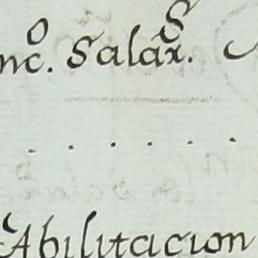 nc.º Salar.s
. . . . . .
Abilitacion